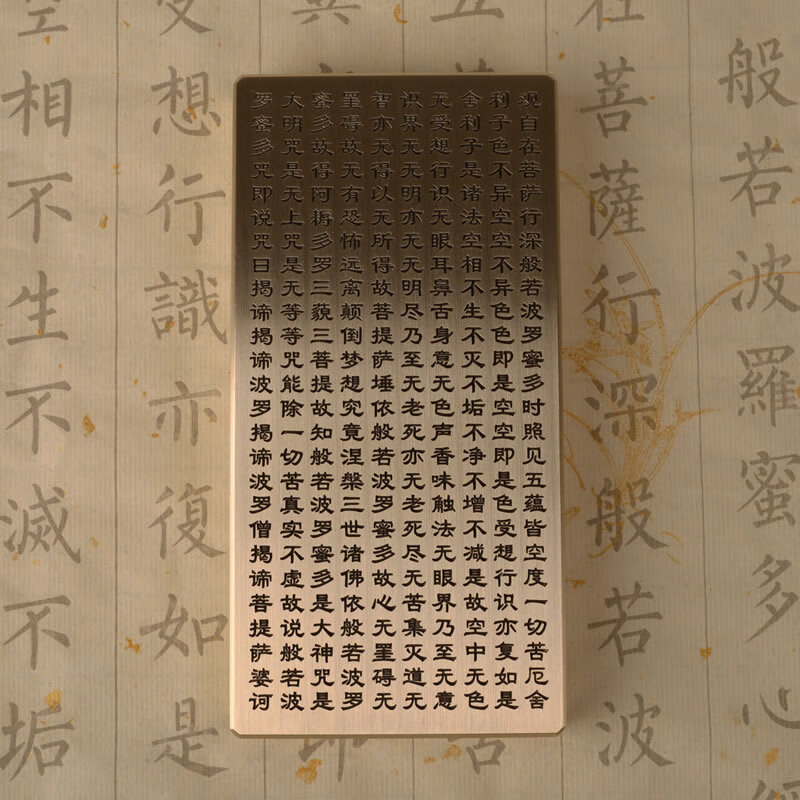 般若波羅蜜多心經
在菩薩行深般若波
观自在菩萨行深般若波罗蜜多时照见五蕴皆空度一切苦厄舍
利子色不异空空不异色色即是空空即是色受想行识亦复如是
舍利子是诸法空相不生不灭不垢不净不增不减是故空中无色
无受想行识无眼耳鼻舌身意无色声香味触法无眼界乃至无意
识界无无明亦无无明尽乃至无老死亦无老死尽无苦集灭道无
智亦无得以无所得故菩提萨埵依般若波罗蜜多故心无罣碍无
罣碍故无有恐怖远离颠倒梦想究竟涅槃三世诸佛依般若波罗
蜜多故得阿耨多罗三藐三菩提故知般若波罗蜜多是大神咒是
大明咒是无上咒是无等等咒能除一切苦真实不虚故说般若波
罗蜜多咒即说咒曰揭谛揭谛波罗揭谛波罗僧揭谛菩提萨婆诃
受想行識亦復如是
空相不生不滅不垢